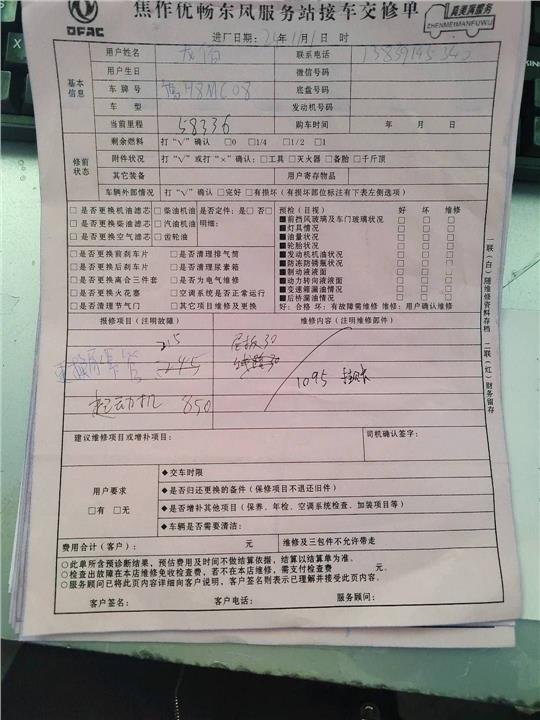 焦作优畅东风服务站接车交修单
DFAC
真美满服务
ZHENMEIMANFUWU
进厂日期: 年 1月1日 时
基本信息
用户姓名 联系电话
用户生日 微信号码
车牌号 H8MC08 底盘号码
车型 发动机号码
当前里程 58336 购车时间 年 月 日
修前状态
剩余燃料 打“√”确认 □0 □1/4 □1/2 □1
附件状况 打“√”或打“×”确认:□工具 □灭火器 □备胎 □千斤顶
其它装备 用户寄存物品
车辆外部情况 打“√”确认 □完好 □有损坏(有损坏部位标注有下表左侧选项)
□是否更换机油滤芯 □柴油机油 是否定件:是□ 否□
□是否更换柴油滤芯 □汽油机油 明细:
□是否更换空气滤芯 □齿轮油
□是否更换前刹车片 □是否清理排气筒
□是否更换后刹车片 □是否清理尿素箱
□是否更换离合三件套 □是否为电气维修
□是否更换火花塞 □空调系统是否正常运行
□是否清理节气门 □其它项目维修及更换
预检(目视) 好 坏 维修
■前挡风玻璃及车门玻璃状况 □ □ □
■灯具情况 □ □ □
■油量状况 □ □ □
■轮胎状况 □ □ □
■发动机机油油状况 □ □ □
■防冻防锈瓶状况 □ □ □
■制动液液面 □ □ □
■动力转向液液面 □ □ □
■变速箱漏油情况 □ □ □
■后桥漏油情况 □ □ □
好:合格 坏:有故障需维修 维修:用户确认维修
一联(白)随维修资料存档 二联(红)财务留存
报修项目(注明故障) 维修内容(注明维修部件)
215 尾板30
245 线路30
1095
起动机 850
建议维修项目或增补项目: 司机确认签字:
用户要求
□有 □无
◆交车时限
◆是否归还更换的备件(保修项目不退还旧件)
◆是否增补其他项目(保养、年检、空调系统检查、加装项目等)
◆车辆是否需要清洁:
费用合计(客户): 元 维修及三包件不允许带走
○此单所含预诊断结果,预估费用及时间不做结算依据,结算以结算单为准。
○检查出故障在本店维修免收检查费,若不在本店维修,需支付检查费 元。
○服务顾问已将此页内容详细向客户说明,客户签名则表示已理解并接受此页内容。
客户签名: 客户电话: 服务顾问: